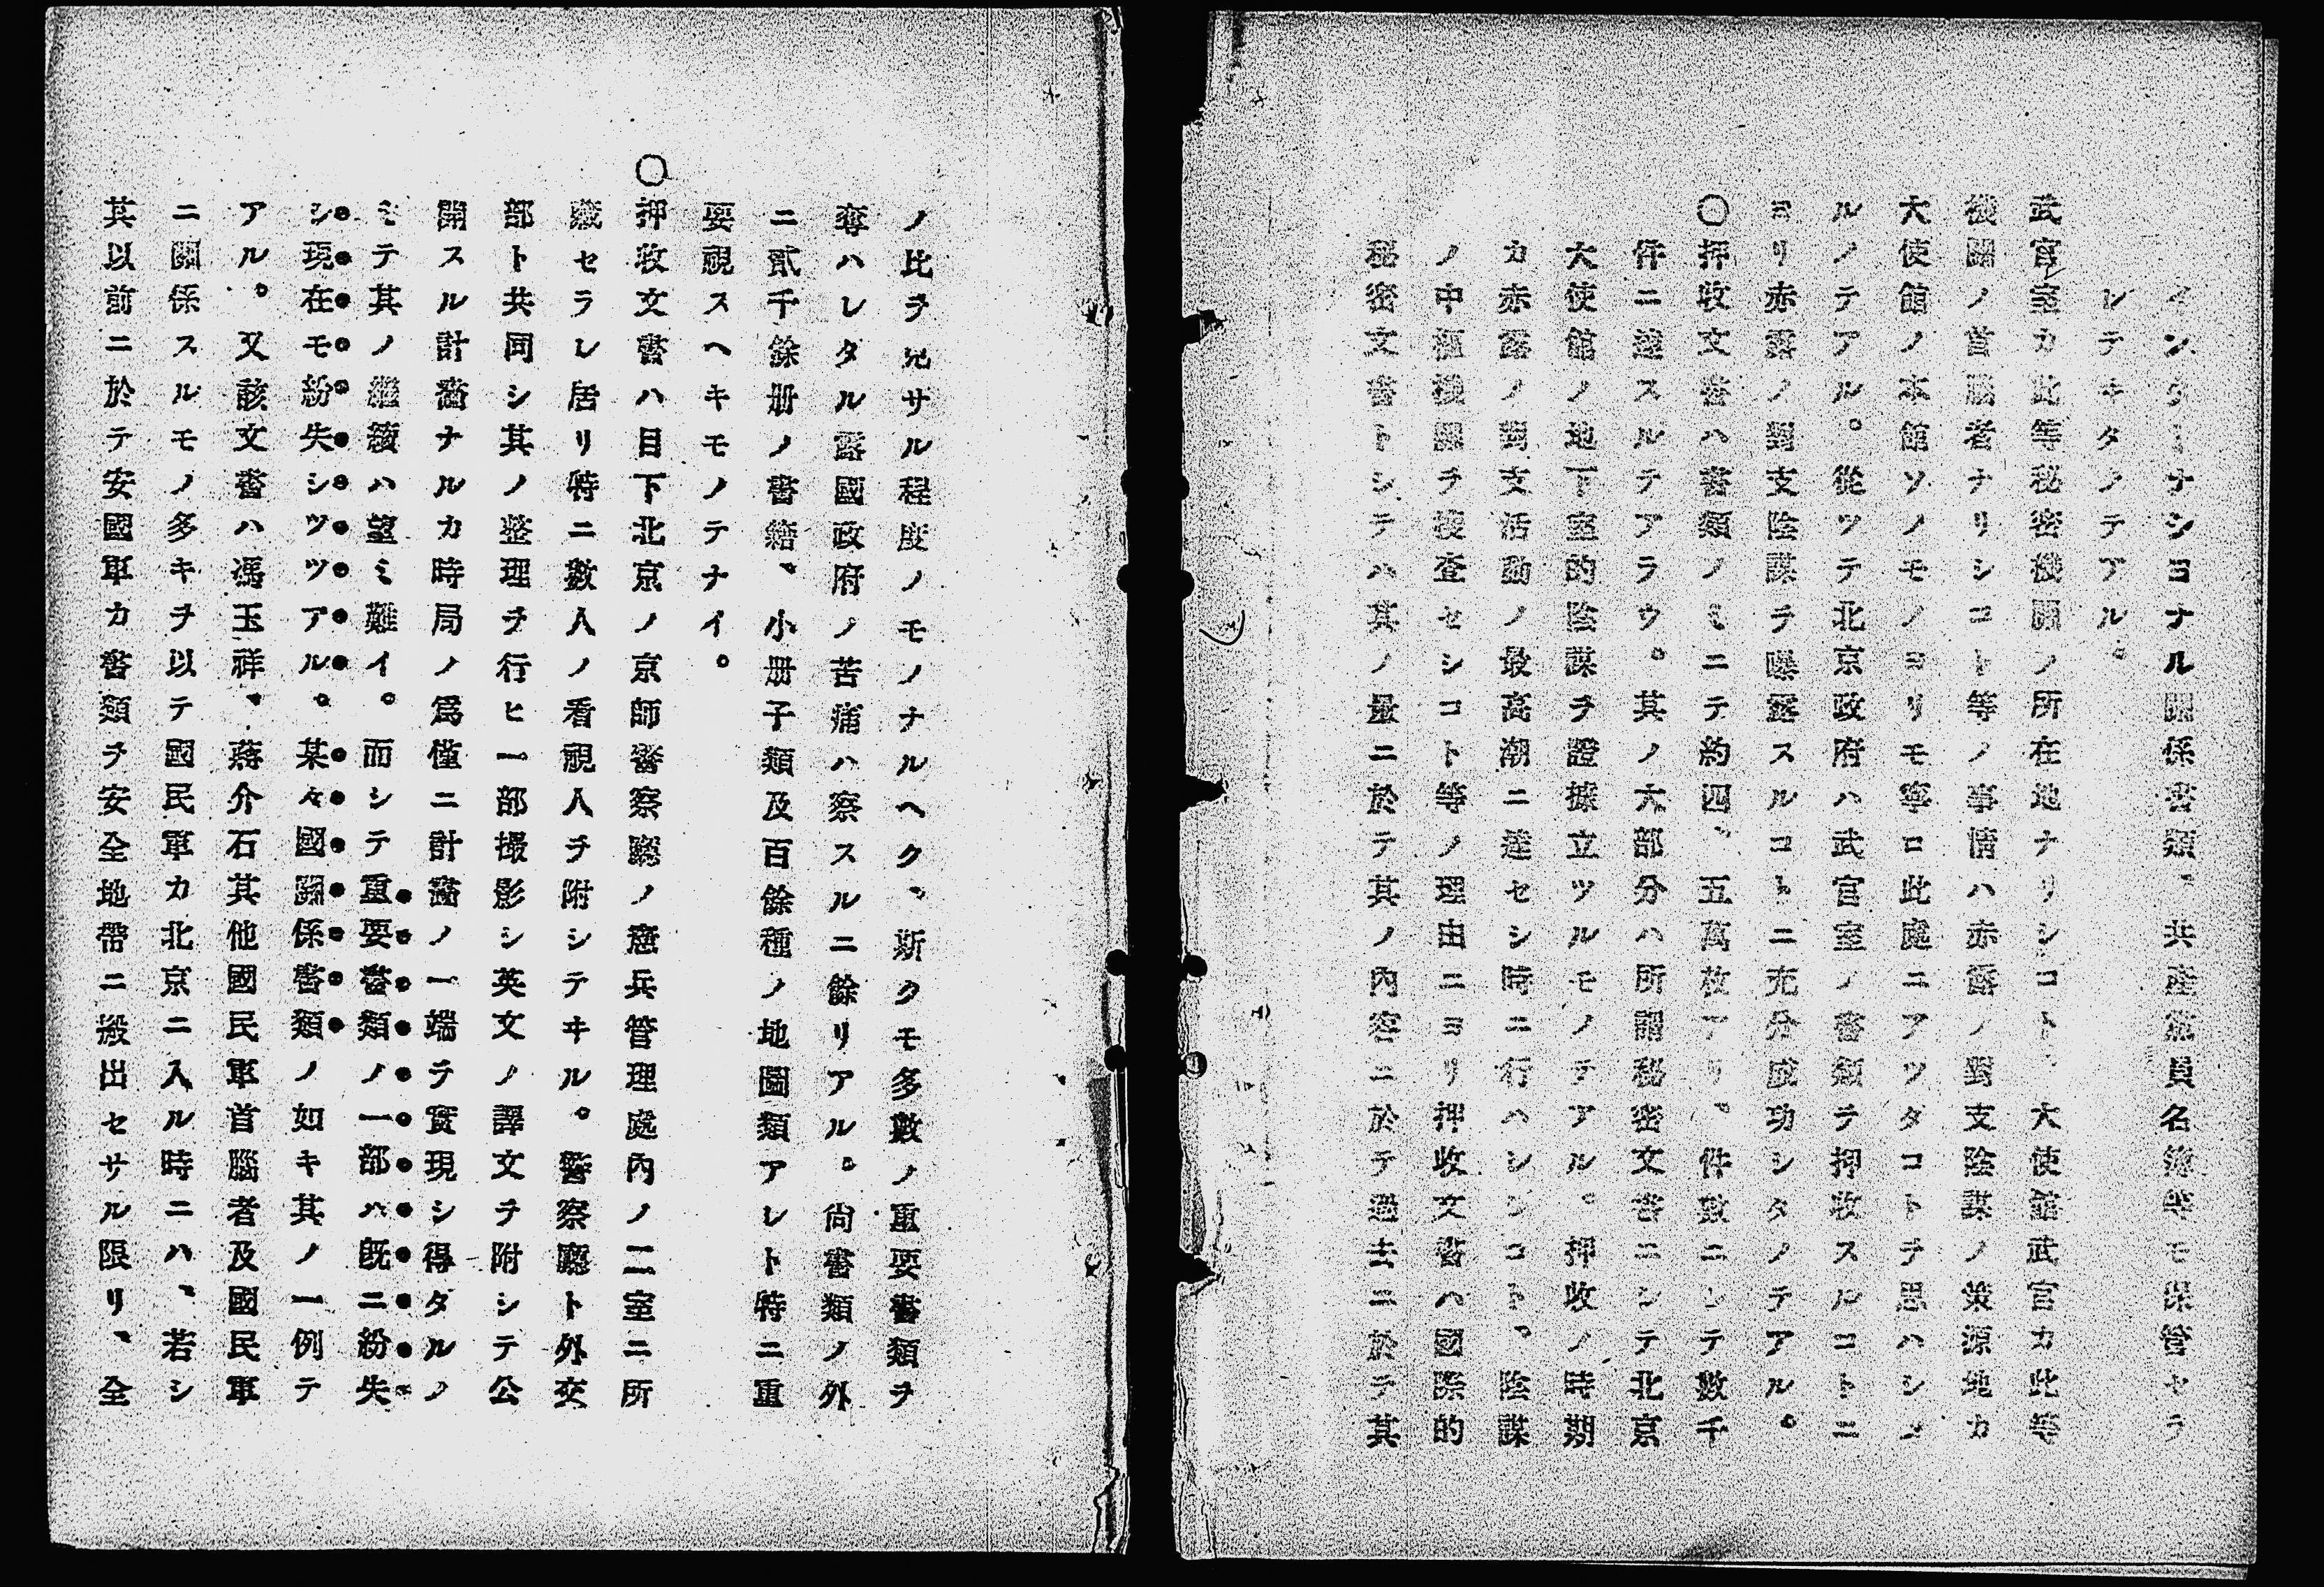 インターナシヨナル關係書類、共産黨員名簿等モ保管セラ
レテヰタノテアル。
武官室カ此等秘密機關ノ所在地ナリシコト、大使館武官カ此等
機關ノ首腦者ナリシコト等ノ事情ハ赤露ノ對支陰謀ノ策源地カ
大使館ノ本館ソノモノヨリモ寧ロ此處ニアツタコトテ思ハシメ
ルノテアル。從ツテ北京政府ハ武官室ノ書類テ押收スルコトニ
ヨリ赤露ノ對支陰謀テ曝露スルコトニ充分成功シタノテアル。
〇押收文書ハ書類ノミニテ約四、五萬枚アリ、件數ニシテ數千
件ニ達スルテアラウ。其ノ大部分ハ所謂秘密文書ニシテ北京
大使館ノ地下室的陰謀ヲ證據立ツルモノテアル。押收ノ時期
カ赤露ノ對支活動ノ最高潮ニ達セシ時ニ行ハレシコト、陰謀
ノ中樞機關ヲ檢査セシコト等ノ理由ニヨリ押收文書ハ國際的
秘密文書トシテハ其ノ量ニ於テ其ノ內容ニ於テ過去ニ於テ其
ノ比ヲ見サル程度ノモノナルヘク、斯クモ多數ノ重要書類ヲ
奪ハレタル露國政府ノ苦痛ハ察スルニ餘リアル。尙書類ノ外
ニ貳千餘册ノ書籍、小册子類及百餘種ノ地圖類アレト特ニ重
要視スヘキモノテナイ。
〇押收文書ハ目下北京ノ京師警察廳ノ憲兵管理處內ノ二室ニ所
藏セラレ居リ特ニ數人ノ看視人ヲ附シテヰル。警察廳ト外交
部ト共同シ其ノ整理ヲ行ヒ一部撮影シ英文ノ譯文ヲ附シテ公
開スル計畵ナルカ時局ノ爲僅ニ計畵ノ一端テ實現シ得タルノ
ミテ其ノ繼續ハ望ミ難イ。而シテ重要書類ノ一部ハ既ニ紛失
シ現在モ紛失シツツアル。某々國關係書類ノ如キ其ノ一例テ
アル。又該文書ハ馮玉祥、蔣介石其他國民軍首腦者及國民軍
ニ關係スルモノ多キヲ以テ國民軍カ北京ニ入ル時ニハ、若シ
其以前ニ於テ安國軍カ書類ヲ安全地帶ニ搬出セサル限リ、全